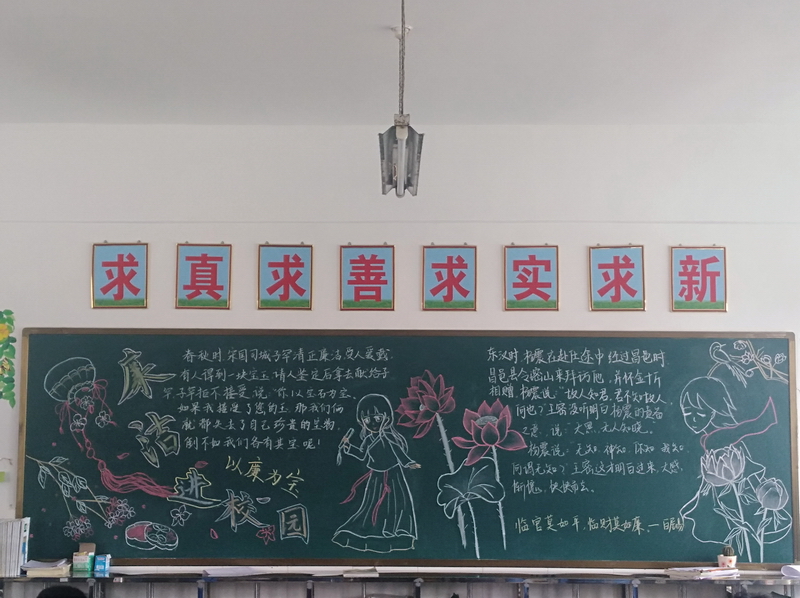 求真求善求实求新
廉洁进校园
春秋时,宋国司城子罕清正廉洁受人爱戴
有人得到一块宝玉,请人鉴定后拿去献给子
罕子罕拒不接受,说"你以宝石为宝,
如果我接受了您的玉,那我们俩
就都失去了自己珍贵的宝物,
倒不如我们各有其宝呢!
以廉为宝
东汉时,杨震在赴任途中经过昌邑时,
昌邑县令王密山来拜访他,并怀金十斤
相赠,杨震说"故人知君,君不知故人,
何也?"王密没听明白杨震的责备
之意,说"天黑,无人知晓。"
杨震说:"天知,神知,你知,我知,
何谓无知?"王密这才明白过来,大感
惭愧,怏怏而去。
临官莫如平,临财莫如廉。